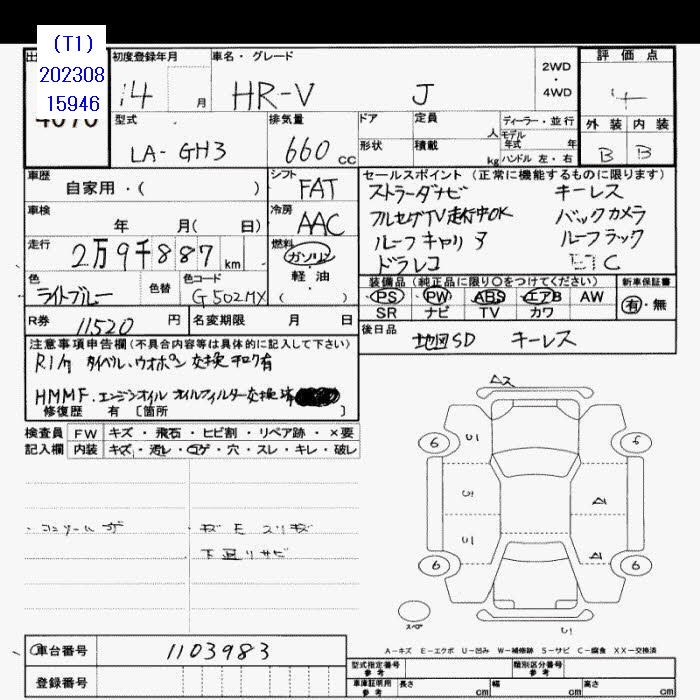 (T1)
202308
15946
初度登録年月
車名・グレード
2WD
・
4WD
評価点
4
14 月
HR-V J
型式
排気量
ドア
定員
人
ディーラー・並行
外装 内装
モデル年式 年
LA-GH3
660 cc
形状
積載
kg
ハンドル 左・右
B B
車歴
自家用・( )
シフト
FAT
セールスポイント(正常に機能するものに限ります)
ストラーダナビ キーレス
車検
年 月( 日)
冷房
AAC
フルセグTV走行中OK バックカメラ
ルーフキャリア ルーフラック
走行
2万9千887 km
燃料
ガソリン
軽・油
( )
ドラレコ ETC
色
ライトブルー
色替
色コード
G502MX
装備品(純正品に限り○をつけてください)
新車保証書
PS PW ABS エアB AW
有・無
SR ナビ TV カワ
R券 11520 円
名変期限 月 日
後日品 地図SD キーレス
注意事項申告欄(不具合内容等は具体的に記入して下さい)
HMMF.エンジンオイル オイルフィルター交換済
修復歴 有 〔箇所 〕
検査員 FW キズ・飛石・ヒビ割・リペア跡・×要
記入欄 内装 キズ・汚レ・コゲ・穴・スレ・キレ・破レ
下回りサビ
A2
U1
6 6
U1
A1
U1
A1
6 6
スペア
U1
A-キズ E-エクボ U-凹み W-補修跡 S-サビ C-腐食 XX-交換済
車台番号 1103983
登録番号
型式指定番号 参考
類別区分番号 参考
車庫証明用 参考
長さ cm
幅 cm
高さ cm